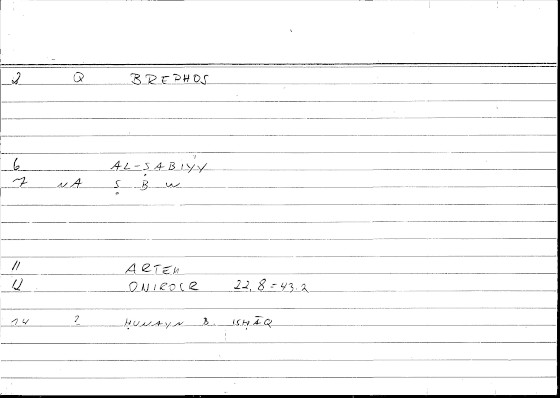 2 Q BREPHOS
6 AL-ṢABIYY
7 NA Ṣ B W
11 ARTEM
12 ONIROCR 22.8=43.2
14 2 ḤUNAYN B. ISḤĀQ